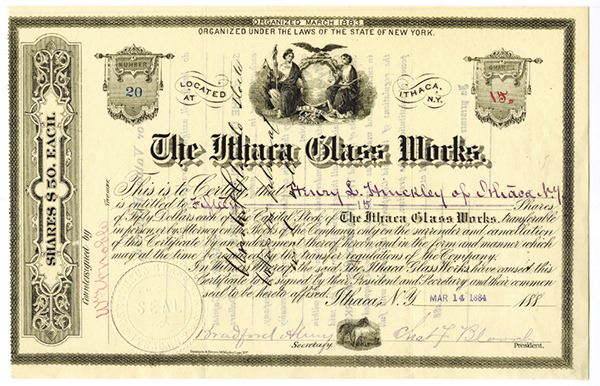 ORGANIZED MARCH 1883.
ORGANIZED UNDER THE LAWS OF THE STATE OF NEW YORK.
NUMBER
20
LOCATED AT
ITHACA, N.Y.
SHARES
15
SHARES $50. EACH.
The Ithaca Glass Works.
This is to Certify that Henry L. Hinckley of Ithaca N.Y
is entitled to Fifteen 15 Shares
of Fifty Dollars each of the Capital Stock of The Ithaca Glass Works. transferable
in person or by Attorney on the Books of the Company only on the surrender and cancellation
of this Certificate by an endorsement thereof hereon and in the form and manner which
may at the time be required by the transfer regulations of the Company.
In Witness Whereof the said The Ithaca Glass Works have caused this
Certificate to be signed by their President and Secretary and their common
seal to be hereto affixed. Ithaca N.Y. MAR 14 1884 188
Countersigned by
Treasurer
SEAL
Bradford
Secretary.
Chas F
President.